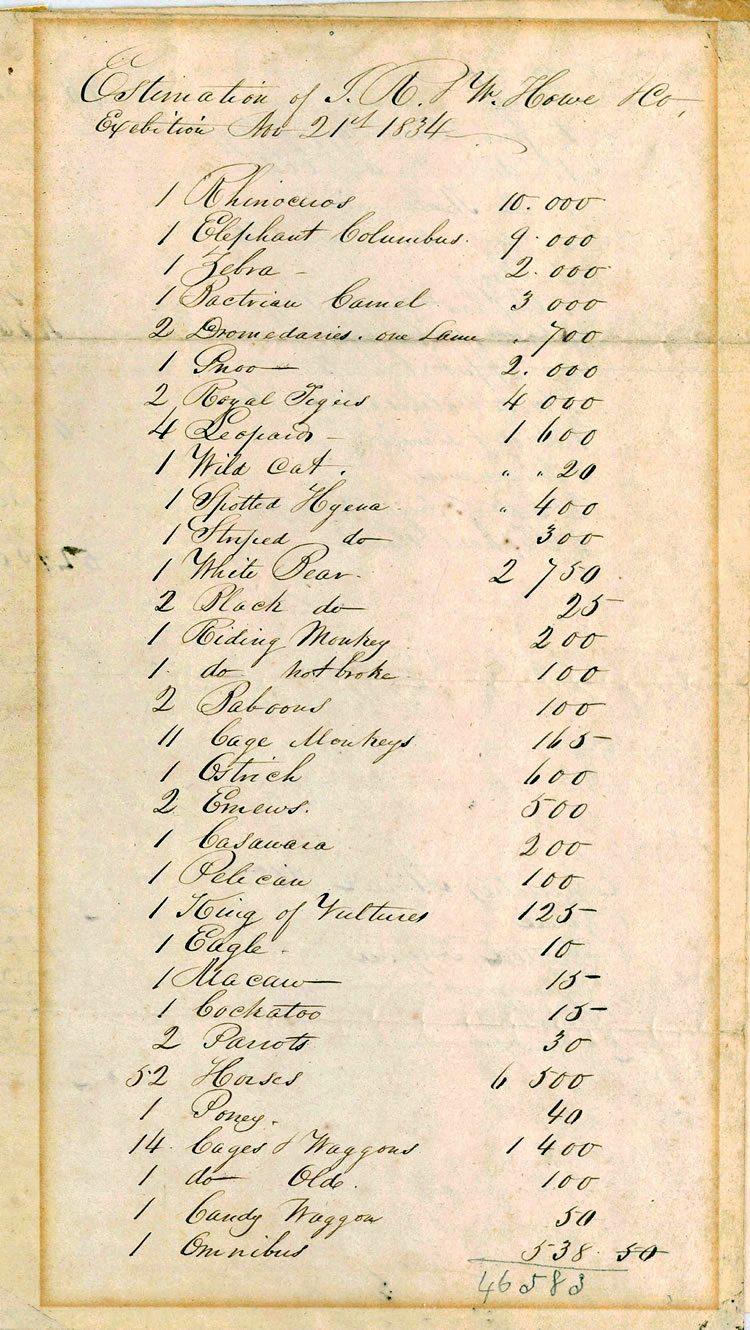 Estimation of J. R. & W. Howe & Co,
Exebition Nov 21st 1834
1 Rhinoceros 10.000
1 Elephant Columbus. 9.000
1 Zebra - 2.000
1 Bactrian Camel 3 000
2 Dromedaries. one Lame . 700
1 Gnoo — 2.000
2 Royal Tigers 4 000
4 Leopards - 1 600
1 Wild Cat. " " 20
1 Spotted Hyena. " 400
1 Striped do 300
1 White Bear. 2 750
2 Black do 25
1 Riding Monkey 200
1. do not broke 100
2 Baboons 100
11 Cage Monkeys 165
1 Ostrich 600
2 Emews. 500
1 Casawara 200
1 Pelican 100
1 King of Vultures 125
1 Eagle. 10
1 Macaw — 15
1 Cockatoo 15
2 Parrots 30
52 Horses 6 500
1 Poney. 40
14. Cages & Waggons 1 400
1 do Olde. 100
1 Candy Waggon 50
1 Omnibus 538.50
46583